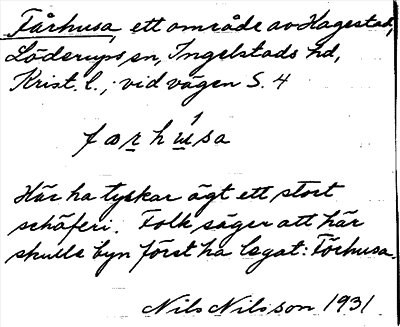 Fårhusa, ett område av Hagestad,
Löderups sn, Ingelstads hd,
Krist. l., vid vägen S. 4
færhúsa
Här ha tyskar ägt ett stort
schäferi. Folk säger att här
skulle byn först ha legat: Förhusa.
Nils Nilsson 1931